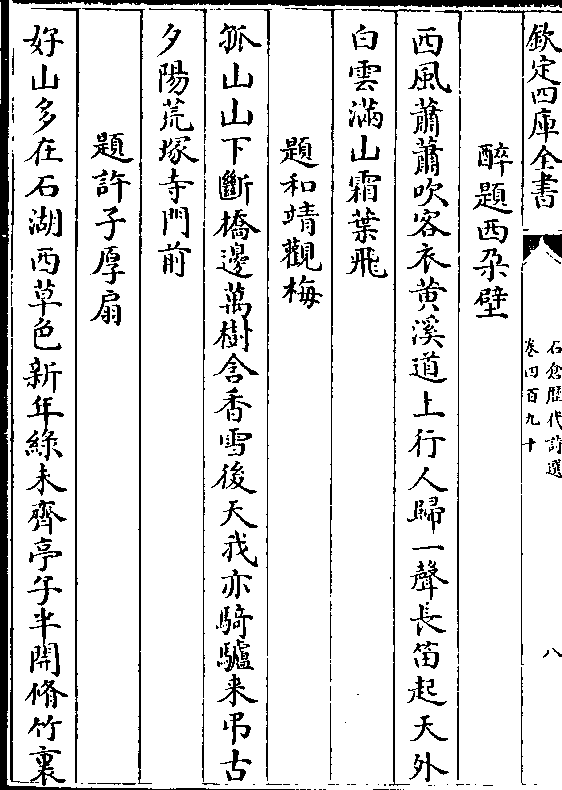 欽定四庫全書
石倉歷代詩選
卷四百九十
八
醉題西朶壁
西風蕭蕭吹客衣黄溪道上行人歸一聲長笛起天外
白雲滿山霜葉飛
題和靖觀梅
孤山山下斷橋邊萬樹含香雪後天我亦騎驢来弔古
夕陽荒塚寺門前
題許子厚扇
好山多在石湖西草色新年綠未齊亭子半開脩竹裏